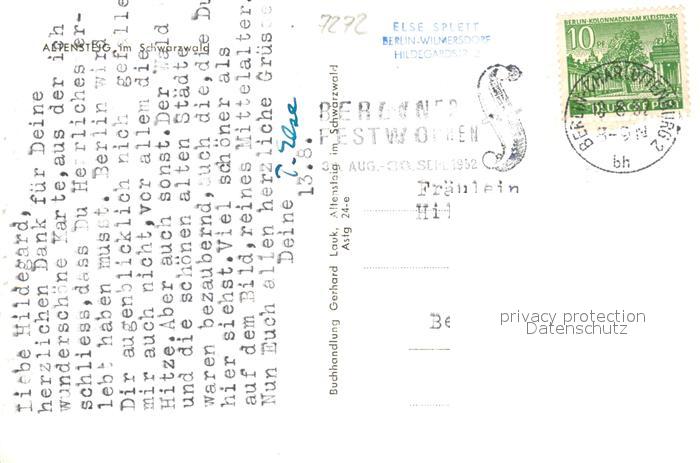 7272
ELSE SPLETT
BERLIN-WILMERSDORF
BERLIN-KOLONNADEN AM KLEISTPARK
10 PF
ALTENSTEIG im Schwarzwald
Liebe Hildegard,
herzlichen Dank für Deine
wunderschöne Karte, aus der ich
schliess, dass Du Herrliches er-
lebt haben musst. Berlin wird
Dir augenblicklich nich gefalle
mir auch nicht, vor allem die
Hitze. Aber auch sonst. Der Wald
und die schönen alten Städte
waren bezaubernd, auch die, die Du
hier siehst. Viel schöner als
auf dem Bild, reines Mittelalter.
Nun Euch allen herzliche Grüsse
Deine
13.8.
Buchhandlung Gerhard Lauk, Altensteig im Schwarzwald
Astg 24-e
BERLINER
FESTWOCHEN
AUG.-30. SEPT. 1952
bh
Fräulein
Hil
Be
privacy protection
Datenschutz